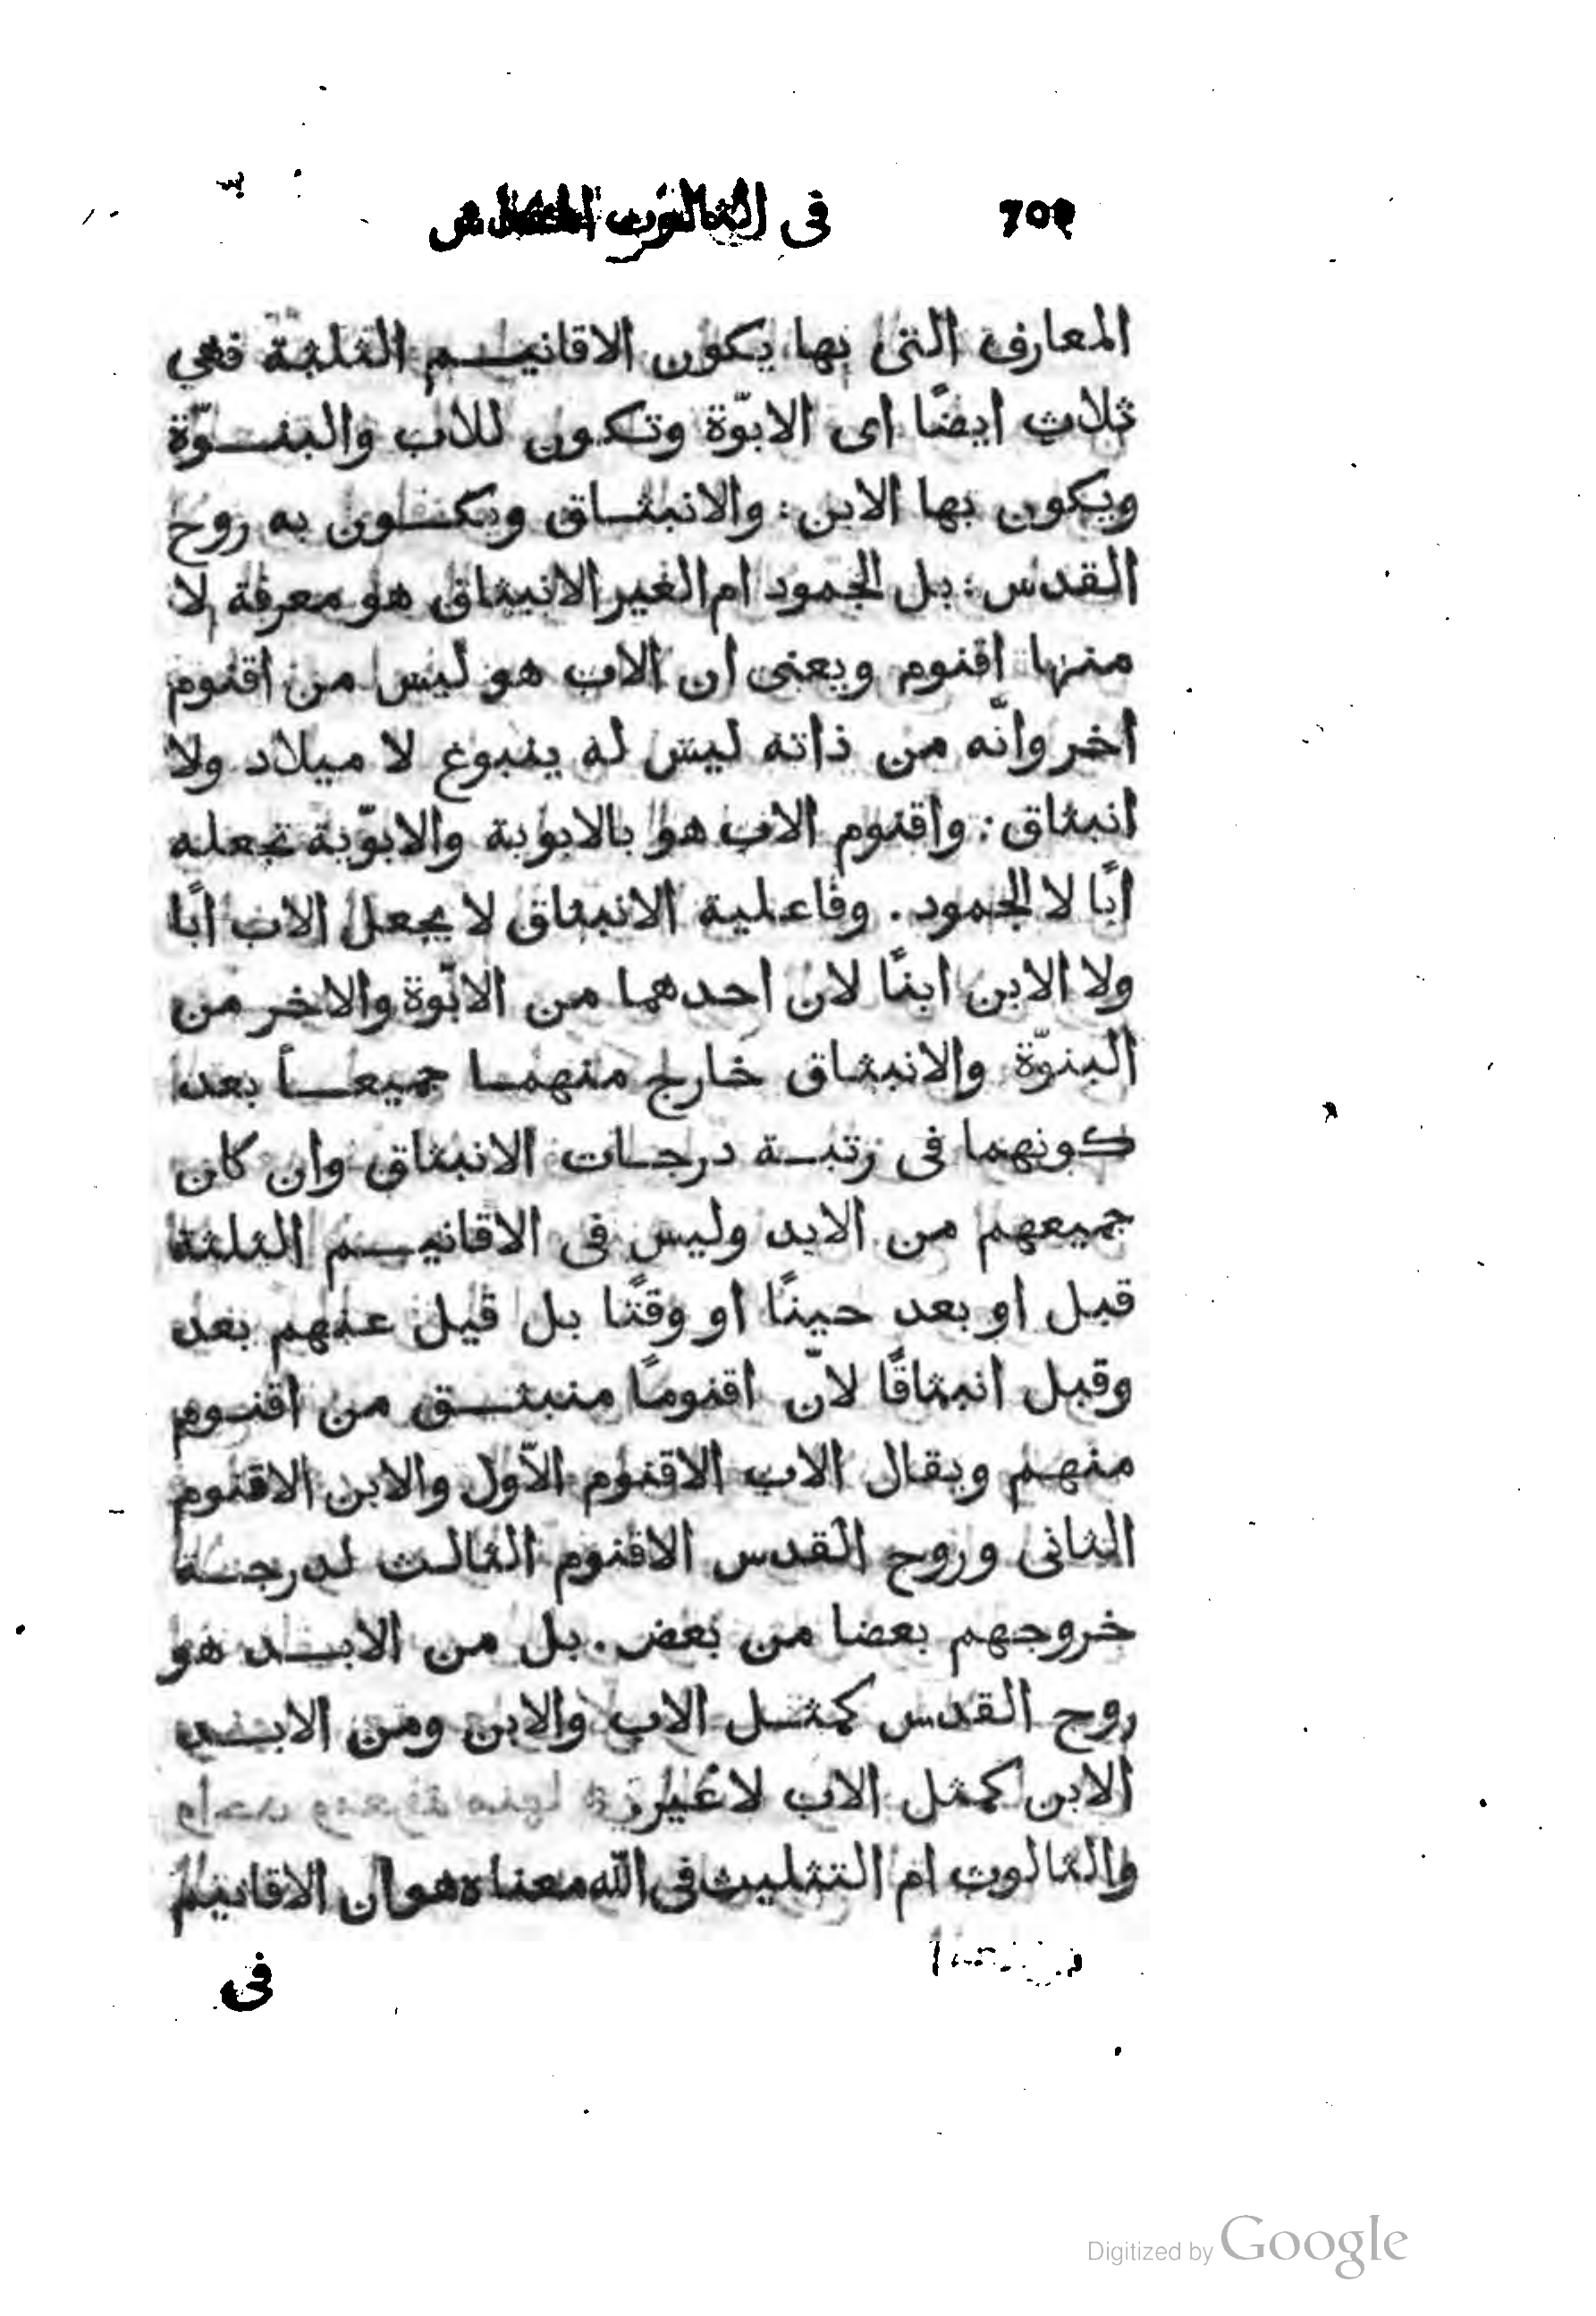 702 فى الثالوث المقدس
المعارف التى بها يكون الاقانيم الثلثة فهى
ثلاث ايضًا اى الابّوة وتكون للاب والبنوّة
ويكون بها الابن : والانبثاق ويكون به روح
القدس : بل الجمود ام الغير الانبثاق هو معرفة لا
منها اقنوم ويعنى ان الاب هو ليس من اقنوم
اخر وانّه من ذاته ليس له ينبوع لا ميلاد ولا
انبثاق : واقنوم الاب هو بالابوبة والابوّبة تجعله
ابًا لا الجمود . وفاعلية الانبثاق لا يجعل الاب ابًا
ولا الابن ابنًا لان احدهما من الابّوة والاخر من
البنوّة والانبثاق خارج منهما جميعاً بعد
كونهما فى رتبة درجات الانبثاق وان كان
جميعهم من الابد وليس فى الاقانيم الثلثة
قبل او بعد حينًا او وقتًا بل قيل عنهم بعد
وقبل انبثاقًا لانّ اقنومًا منبثق من اقنوم
منهم ويقال الاب الاقنوم الاّول والابن الاقنوم
الثانى وروح القدس الاقنوم الثالث لدرجة
خروجهم بعضا من بعض . بل من الابد هو
روح القدس كمثل الاب والابن ومن الابد
الابن كمثل الاب لا غير
والثالوث ام التثليث فى الله معناه هو ان الاقانيم
فى
Digitized by Google